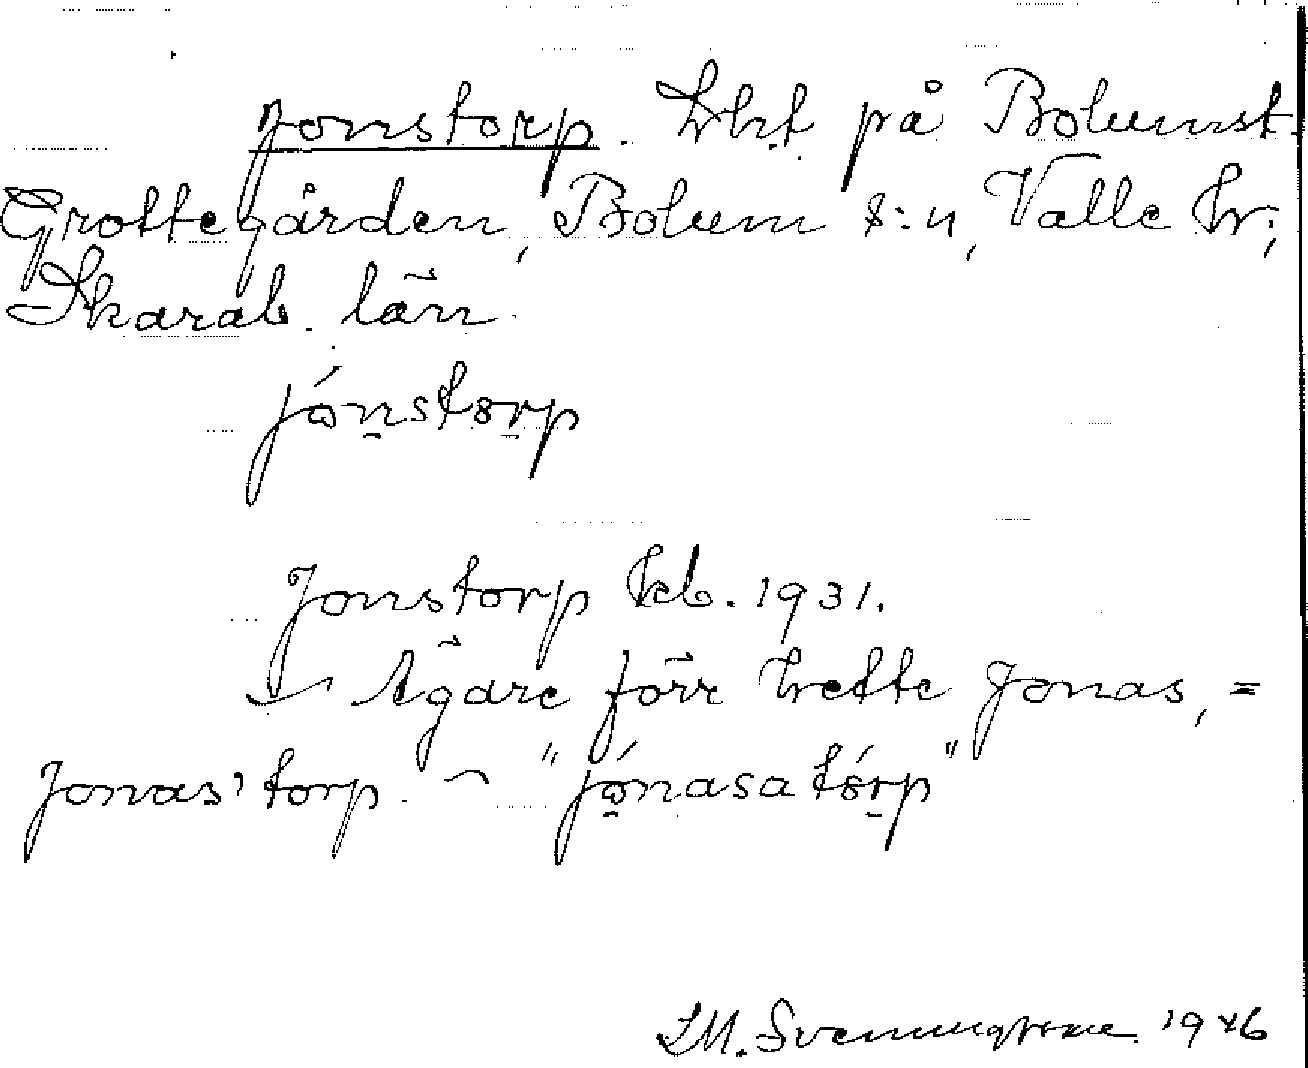 Jonstorp. Lht på Bolumst.
Grottegården, Bolum s:n, Valle hd;
Skarab. län
jónstorp
Jonstorp kb. 1931.
Ägare förr hette Jonas, =
Jonas' torp. ~ "jónasatórp"
Sveningsson 1946